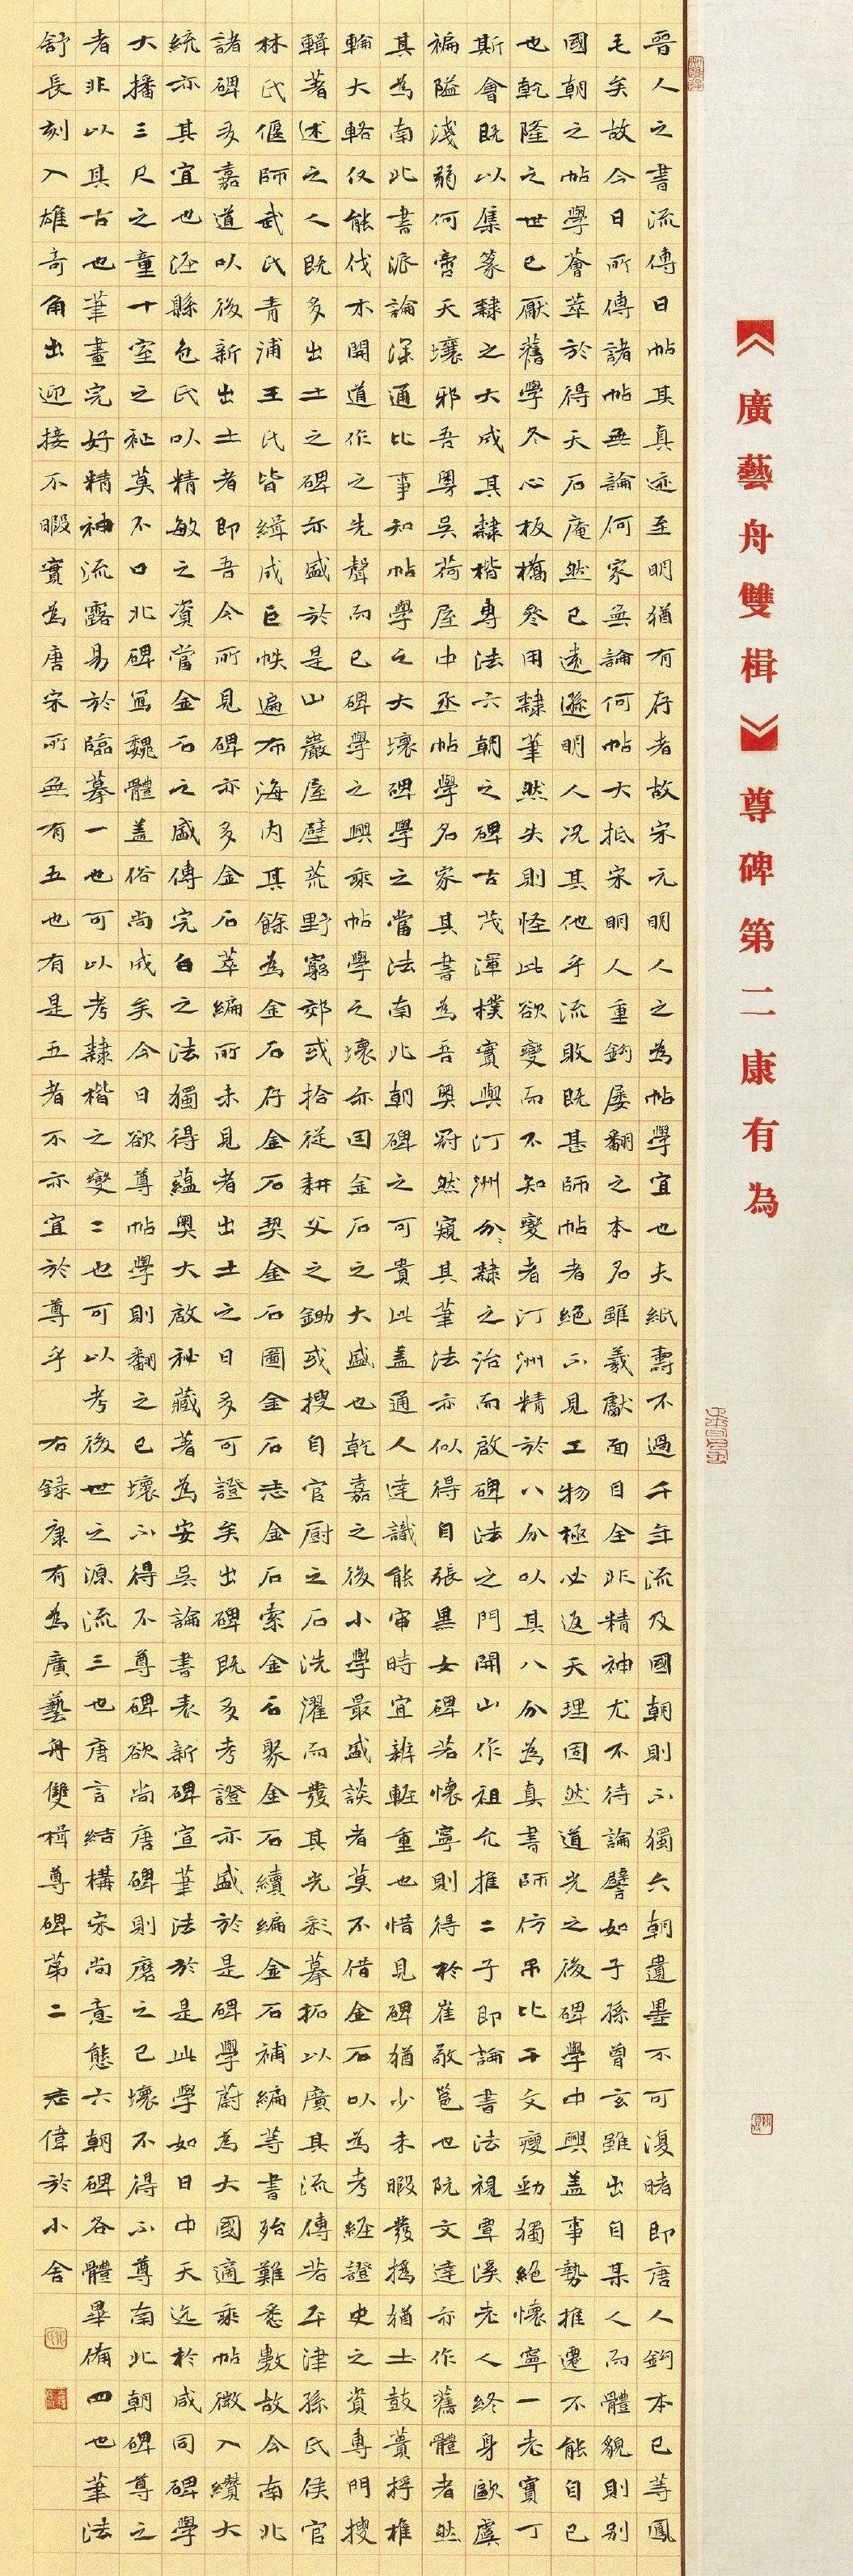 廣藝舟雙楫 尊碑第二 康有為
晉人之書流傳日帖其真迹至明猶有存者故宋元明人之為帖學宜也夫紙壽不過千年流及國朝則不獨六朝遺墨不可復睹即唐人鉤本已等鳳
毛矣故今日所傳諸帖無論何家無論何帖大抵宋明人重鉤屢翻之本名雖羲獻面目全非精神尤不待論譬如子孫曾玄雖出自某人而體貌則別
國朝之帖學薈萃於得天石庵然已遠遜明人況其他乎流敗既甚師帖者絕不見工物極必返天理固然道光之後碑學中興蓋事勢推遷不能自已
也乾隆之世已厭舊學冬心板橋參用隸筆然失則怪此欲變而不知變者汀洲精於八分以其八分為真書師仿吊比干文瘦勁獨絕懷寧一老實丁
斯會既以集篆隸之大成其隸楷專法六朝之碑古茂渾樸實與汀洲分隸之治而啟碑法之門開山作祖允推二子即論書法視覃溪老人終身歐虞
褊隘淺弱何啻天壤邪吾粵吳荷屋中丞帖學名家其書為吾粵冠然窺其筆法亦似得自張黑女碑若懷寧則得於崔敬邕也阮文達亦作舊體者然
其為南北書派論深通此事知帖學之大壞碑學之當法南北朝碑之可貴此蓋通人達識能審時宜辨輊重也惜見碑猶少未暇發撝猶土鼓蕢桴椎
輪大輅仅能伐木開道作之先聲而已碑學之興乘帖學之壞亦因金石之大盛也乾嘉之後小學最盛談者莫不借金石以為考經證史之資專門搜
輯著述之人既多出土之碑亦盛於是山巖屋壁荒野窮郊或拾從耕父之鋤或搜自官廚之石洗濯而發其光彩摹拓以廣其流傳若平津孫氏侯官
林氏偃師武氏青浦王氏皆緝成巨帙遍布海內其餘為金石存金石契金石圖金石志金石索金石聚金石續編金石補編等書殆難悉數故今南北
諸碑多嘉道以後新出土者即吾今所見碑亦多金石萃編所未見者出土之日多可證矣出碑既多考證亦盛於是碑學蔚為大國適乘帖微入纘大
統亦其宜也涇縣包氏以精敏之資當金石之盛傳完白之法獨得蘊奧大啟秘藏著為安吳論書表新碑宣筆法於是此學如日中天迄於咸同碑學
大播三尺之童十室之社莫不口北碑寫魏體蓋俗尚成矣今日欲尊帖學則翻之已壞不得不尊碑欲尚唐碑則磨之已壞不得不尊南北朝碑尊之
者非以其古也筆畫完好精神流露易於臨摹一也可以考隸楷之變二也可以考後世之源流三也唐言結構宋尚意態六朝碑各體畢備四也筆法
舒長刻入雄奇角出迎接不暇實為唐宋所無有五也有是五者不亦宜於尊乎 右錄康有為廣藝舟雙楫尊碑第二 志偉於小舍